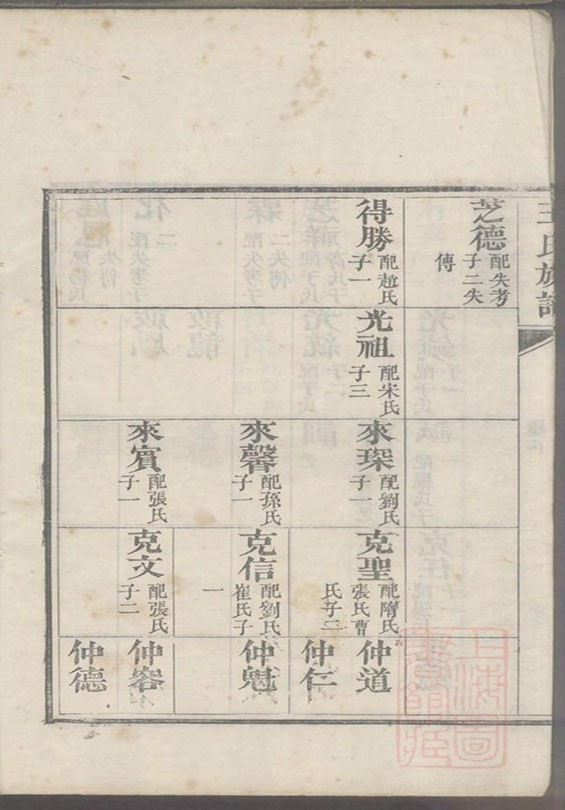 王氏族譜
芝德 配失考子二失傳
得勝 配趙氏子一
光祖 配宋氏子三
來琛 配劉氏子一
來馨 配孫氏子一
來賓 配張氏子一
克聖 配隋氏張氏曹氏子二
克信 配劉氏崔氏子一
克文 配張氏子二
仲道
仲仁
仲魁
仲容
仲德
上海圖書館藏